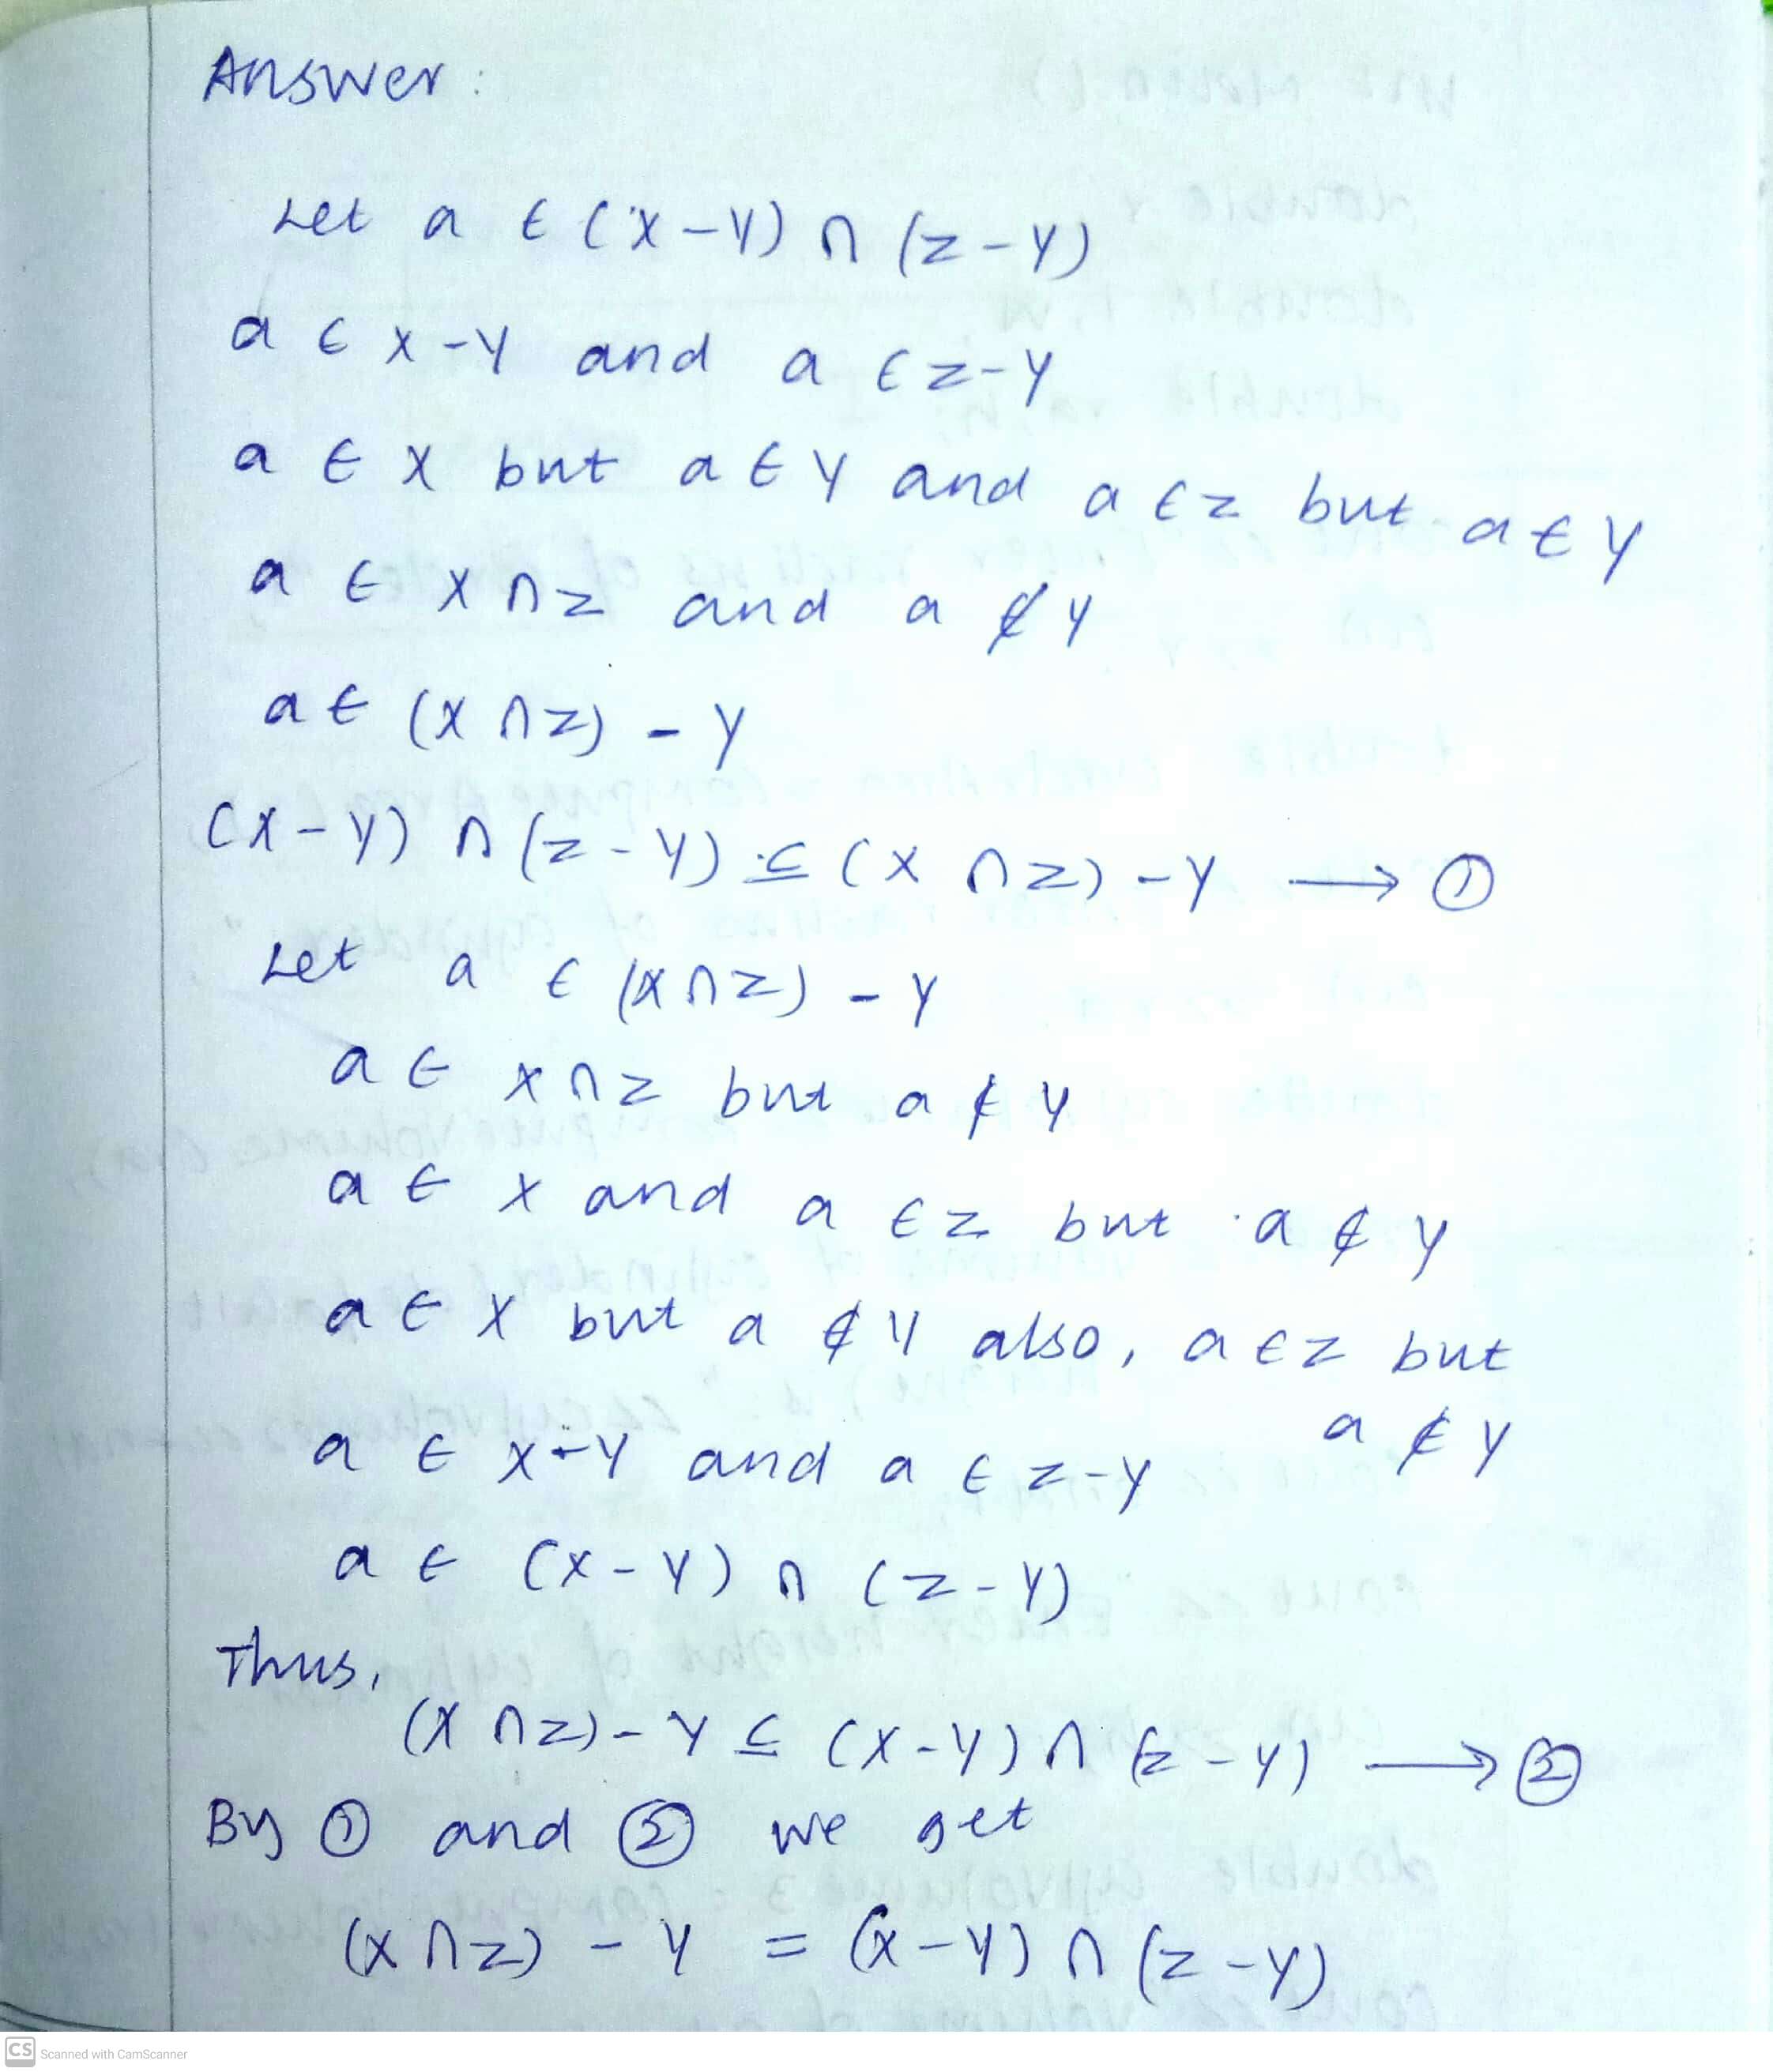 Answer :
Let a ∈ (X - Y) ∩ (Z - Y)
a ∈ X - Y and a ∈ Z - Y
a ∈ X but a ∈ Y and a ∈ Z but a ∈ Y
a ∈ X ∩ Z and a ∉ Y
a ∈ (X ∩ Z) - Y
(X - Y) ∩ (Z - Y) ⊆ (X ∩ Z) - Y → ①
Let a ∈ (X ∩ Z) - Y
a ∈ X ∩ Z but a ∉ Y
a ∈ X and a ∈ Z but a ∉ Y
a ∈ X but a ∉ Y also, a ∈ Z but
a ∉ Y
a ∈ X - Y and a ∈ Z - Y
a ∈ (X - Y) ∩ (Z - Y)
Thus,
(X ∩ Z) - Y ⊆ (X - Y) ∩ (Z - Y) → ②
By ① and ② we get
(X ∩ Z) - Y = (X - Y) ∩ (Z - Y)
CS Scanned with CamScanner